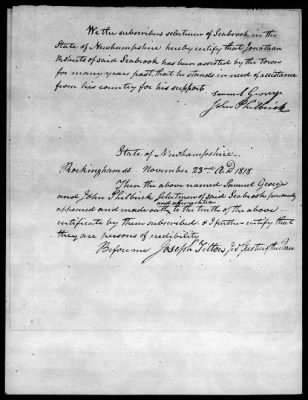 We the subscribers selectmen of Seabrook in the
State of Newhampshire hereby certify that Jonathan
Roberts of said Seabrook has been assisted by the town
for many years past, that he stands in need of assistance
from his country for his support.
Samuel George
John Philbrick
State of Newhampshire
Rockingham ss. November 23rd A.D 1818
Then the above named Samuel George
and John Philbrick Selectmen of said Seabrook personaly
appeared and made oath
and affirmation
to the truth of the above
certificate by them subscribed & I further certify that
they are persons of credibility
Before me Joseph Tilton Justice of the Peace